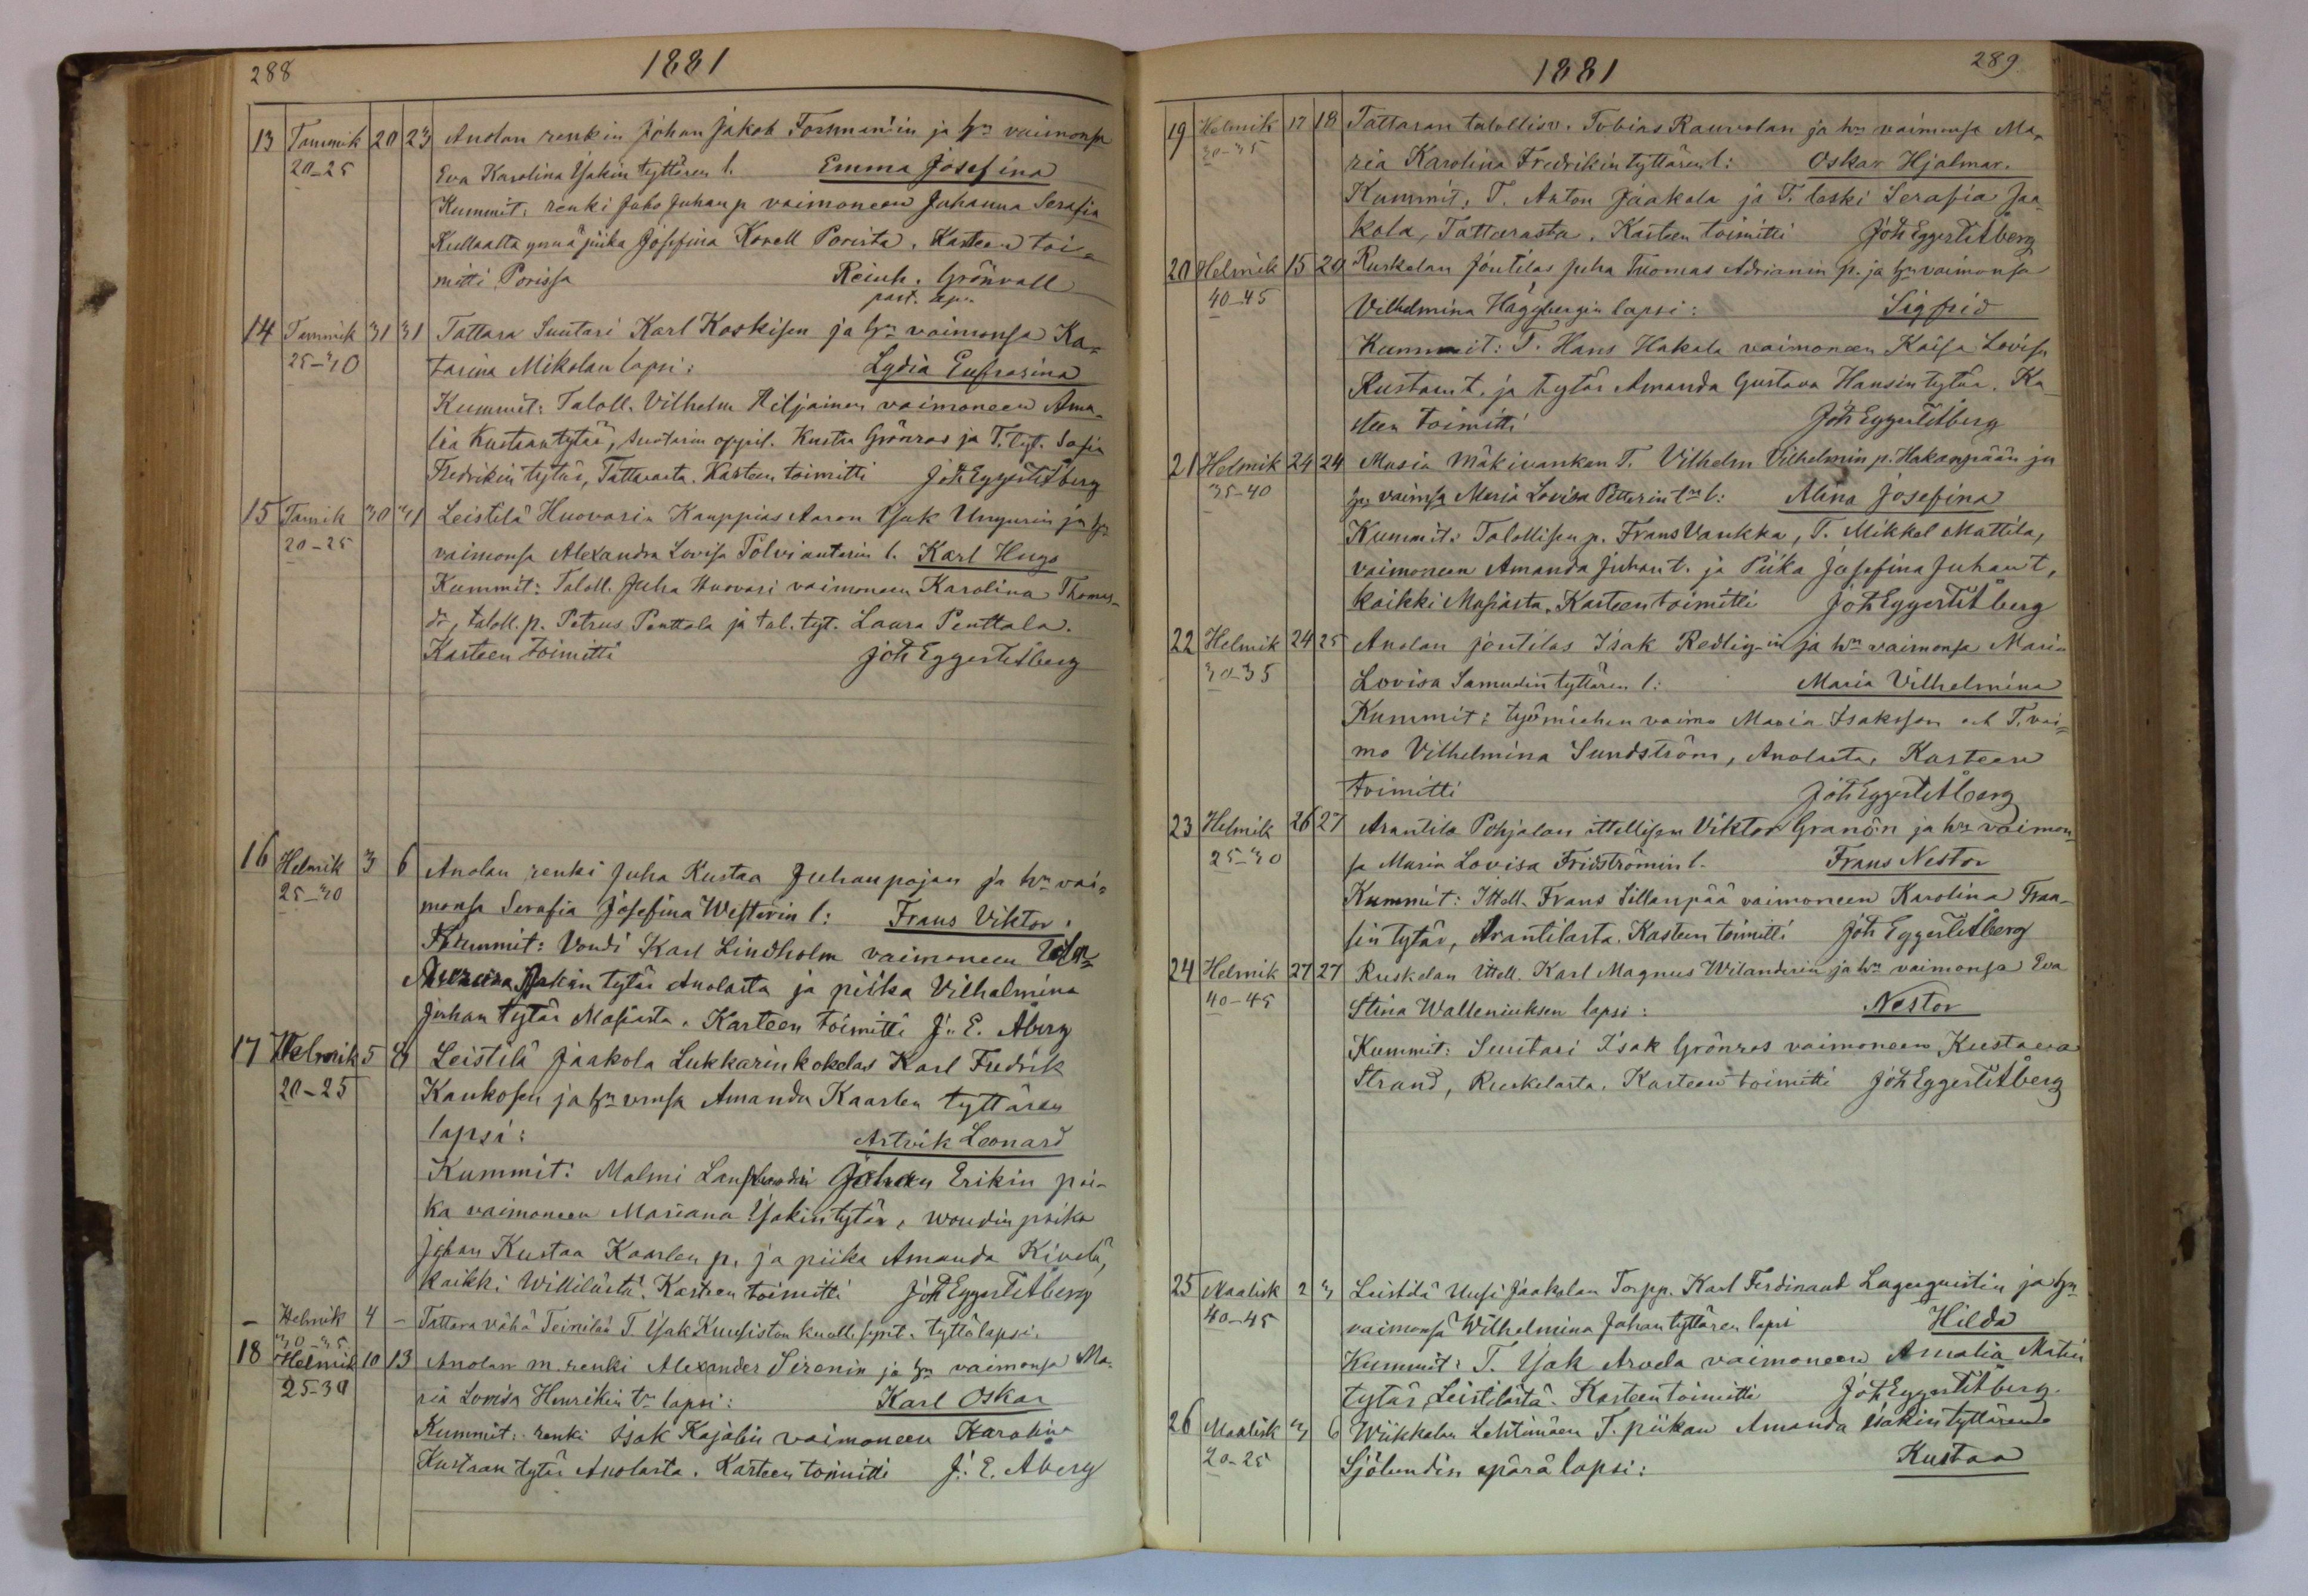 288
1881
13 Tammik 20 23 Anolan renkin Johan Jakob Forsman'in ja hn vaimonsa
20-25 Eva Karolina Isakin tyttären l. Emma Josefina
Kummit: renki Juho Juhan p. vaimoneen Juhanna Serafia
Kullaalta ynnä piika Josefina Korell Porista. Kasteen toi-
mitti Porissa Reinh. Grönvall
past.
14 Tammik 31 31 Tattara Suutari Karl Koskisen ja hn vaimonsa Ka-
25-30 tarina Mikolan lapsi: Lydia Eufrosina
Kummit: Taloll. Vilhelm Hiljainen vaimoneen Ama-
lia Kustaantytär, suutarin oppil. Kustaa Grönros ja T. tyt. Sofia
Fredrikin tytär, Tattarasta. Kasteen toimitti Joh Eggert Åberg
15 Tamik 30 31 Leistilä Huovarin Kauppias Aaron Isak Ungurin ja hn
20-25 vaimonsa Alexandra Lovisa Tolvianterin l. Karl Hugo
Kummit: Taloll. Juha Huovari vaimoneen Karolina Thomas-
dr, taloll. p. Petrus Penttala ja tal. tyt. Laura Penttala.
Kasteen toimitti Joh Eggert Åberg
16 Helmik 3 6 Anolan renki Juha Kustaa Juhanpojan ja hn vai-
25-30 monsa Serafia Josefina Westerin l: Frans Viktor.
Kummit: Vouti Karl Lindholm vaimoneen
Isakin tytär Anolasta ja piika Vilhelmina
Juhan tytär Masiasta. Kasteen toimitti J. E. Åberg
17 Helmik 5 8 Leistilä Jaakola Lukkarinkokelas Karl Fredrik
20-25 Kaukosen ja hn vmsa Amanda Kaarlen tyttären
lapsi: Artvik Leonard
Kummit: Malmi Johan Erikin poi-
ka vaimoneen Mariana Isakintytär, woudin poika
Johan Kustaa Kaarlen p. ja piika Amanda Kivelä,
kaikki Willilästä. Kasteen toimitti Joh Eggert Åberg
- Helmik 4 - Tattara vähä Teinilän T. Isak Kuusiston kuoll. synt. tyttölapsi.
30-35
18 Helmik 10 13 Anolan m. renki Alexander Sirenin ja hn vaimonsa Ma-
25-30 ria Lovisa Henrikin tn lapsi: Karl Oskar
Kummit: renki Isak Kajalin vaimoneen Karolina
Kustaan tytär Anolasta. Kasteen toimitti J. E. Åberg
1881
289
19 Helmik 17 18 Tattaran talollisn. Tobias Rauvolan ja hn vaimonsa Ma-
30-35 ria Karolina Fredrikin tyttären l: Oskar Hjalmar.
Kummit: T. Anton Jaakola ja T. leski Serafia Jaa-
kola, Tattarasta. Kasteen toimitti Joh Eggert Åberg
20 Helmik 15 20 Ruskelan Joutilas Juha Thomas Adrianin p. ja hn vaimonsa
40-45 Vilhelmina Häggbergin lapsi: Sigfrid
Kummit: T. Hans Hakala vaimoneen Kaisa Lovisa
Kustaant. ja tytär Amanda Gustava Hansin tytär. Ka-
steen toimitti Joh Eggert Åberg
21 Helmik 24 24 Masia Mäkivankan T. Vilhelm Vilhelmin p. Hakanpään ja
35-40 hn vaimsa Maria Lovisa Petterin tn l: Alina Josefina
Kummit: Talollisen p. Frans Vankka, T. Mikkel Mattila,
vaimoneen Amanda Juhant. ja Piika Josefina Juhant,
kaikki Masiasta. Kasteen toimitti Joh Eggert Åberg
22 Helmik 24 25 Anolan joutilas Isak Redlig-in ja hn vaimonsa Maria
30-35 Lovisa Samuelin tyttären l: Maria Vilhelmina
Kummit: työmiehen vaimo Maria Isaksson och T. vai-
mo Vilhelmina Sundström, Anolasta. Kasteen
toimitti Joh Eggert Åberg
23 Helmik 26 27 Arantila Pohjalan ittellisen Viktor Granön ja hn vaimon-
25-30 sa Maria Lovisa Fridströmin l. Frans Nestor
Kummit: Ittell. Frans Sillanpää vaimoneen Karolina Fran-
sin tytär, Arantilasta. Kasteen toimitti Joh Eggert Åberg
24 Helmik 27 27 Ruskelan Ittell. Karl Magnus Wilanderin ja hn vaimonsa Eva
40-45 Stina Walleniuksen lapsi: Nestor
Kummit: Suutari Isak Grönros vaimoneen Kustava
Strand, Ruskelasta. Kasteen toimitti Joh Eggert Åberg
25 Maalisk 2 3 Leistilä Uusi Jaakolan Torpp. Karl Ferdinand Lagerquistin ja hn
40-45 vaimonsa Wilhelmina Johan tyttären lapsi Hilda
Kummit: T. Isak Arvela vaimoneen Amalia Matin
tytär, Leistilästä. Kasteen toimitti Joh Eggert Åberg.
26 Maalisk 3 6 Wiikkalan Lehtimäen T. piikan Amanda Isakin tyttären
20-25 Sjölundin äpärä lapsi: Kustaa